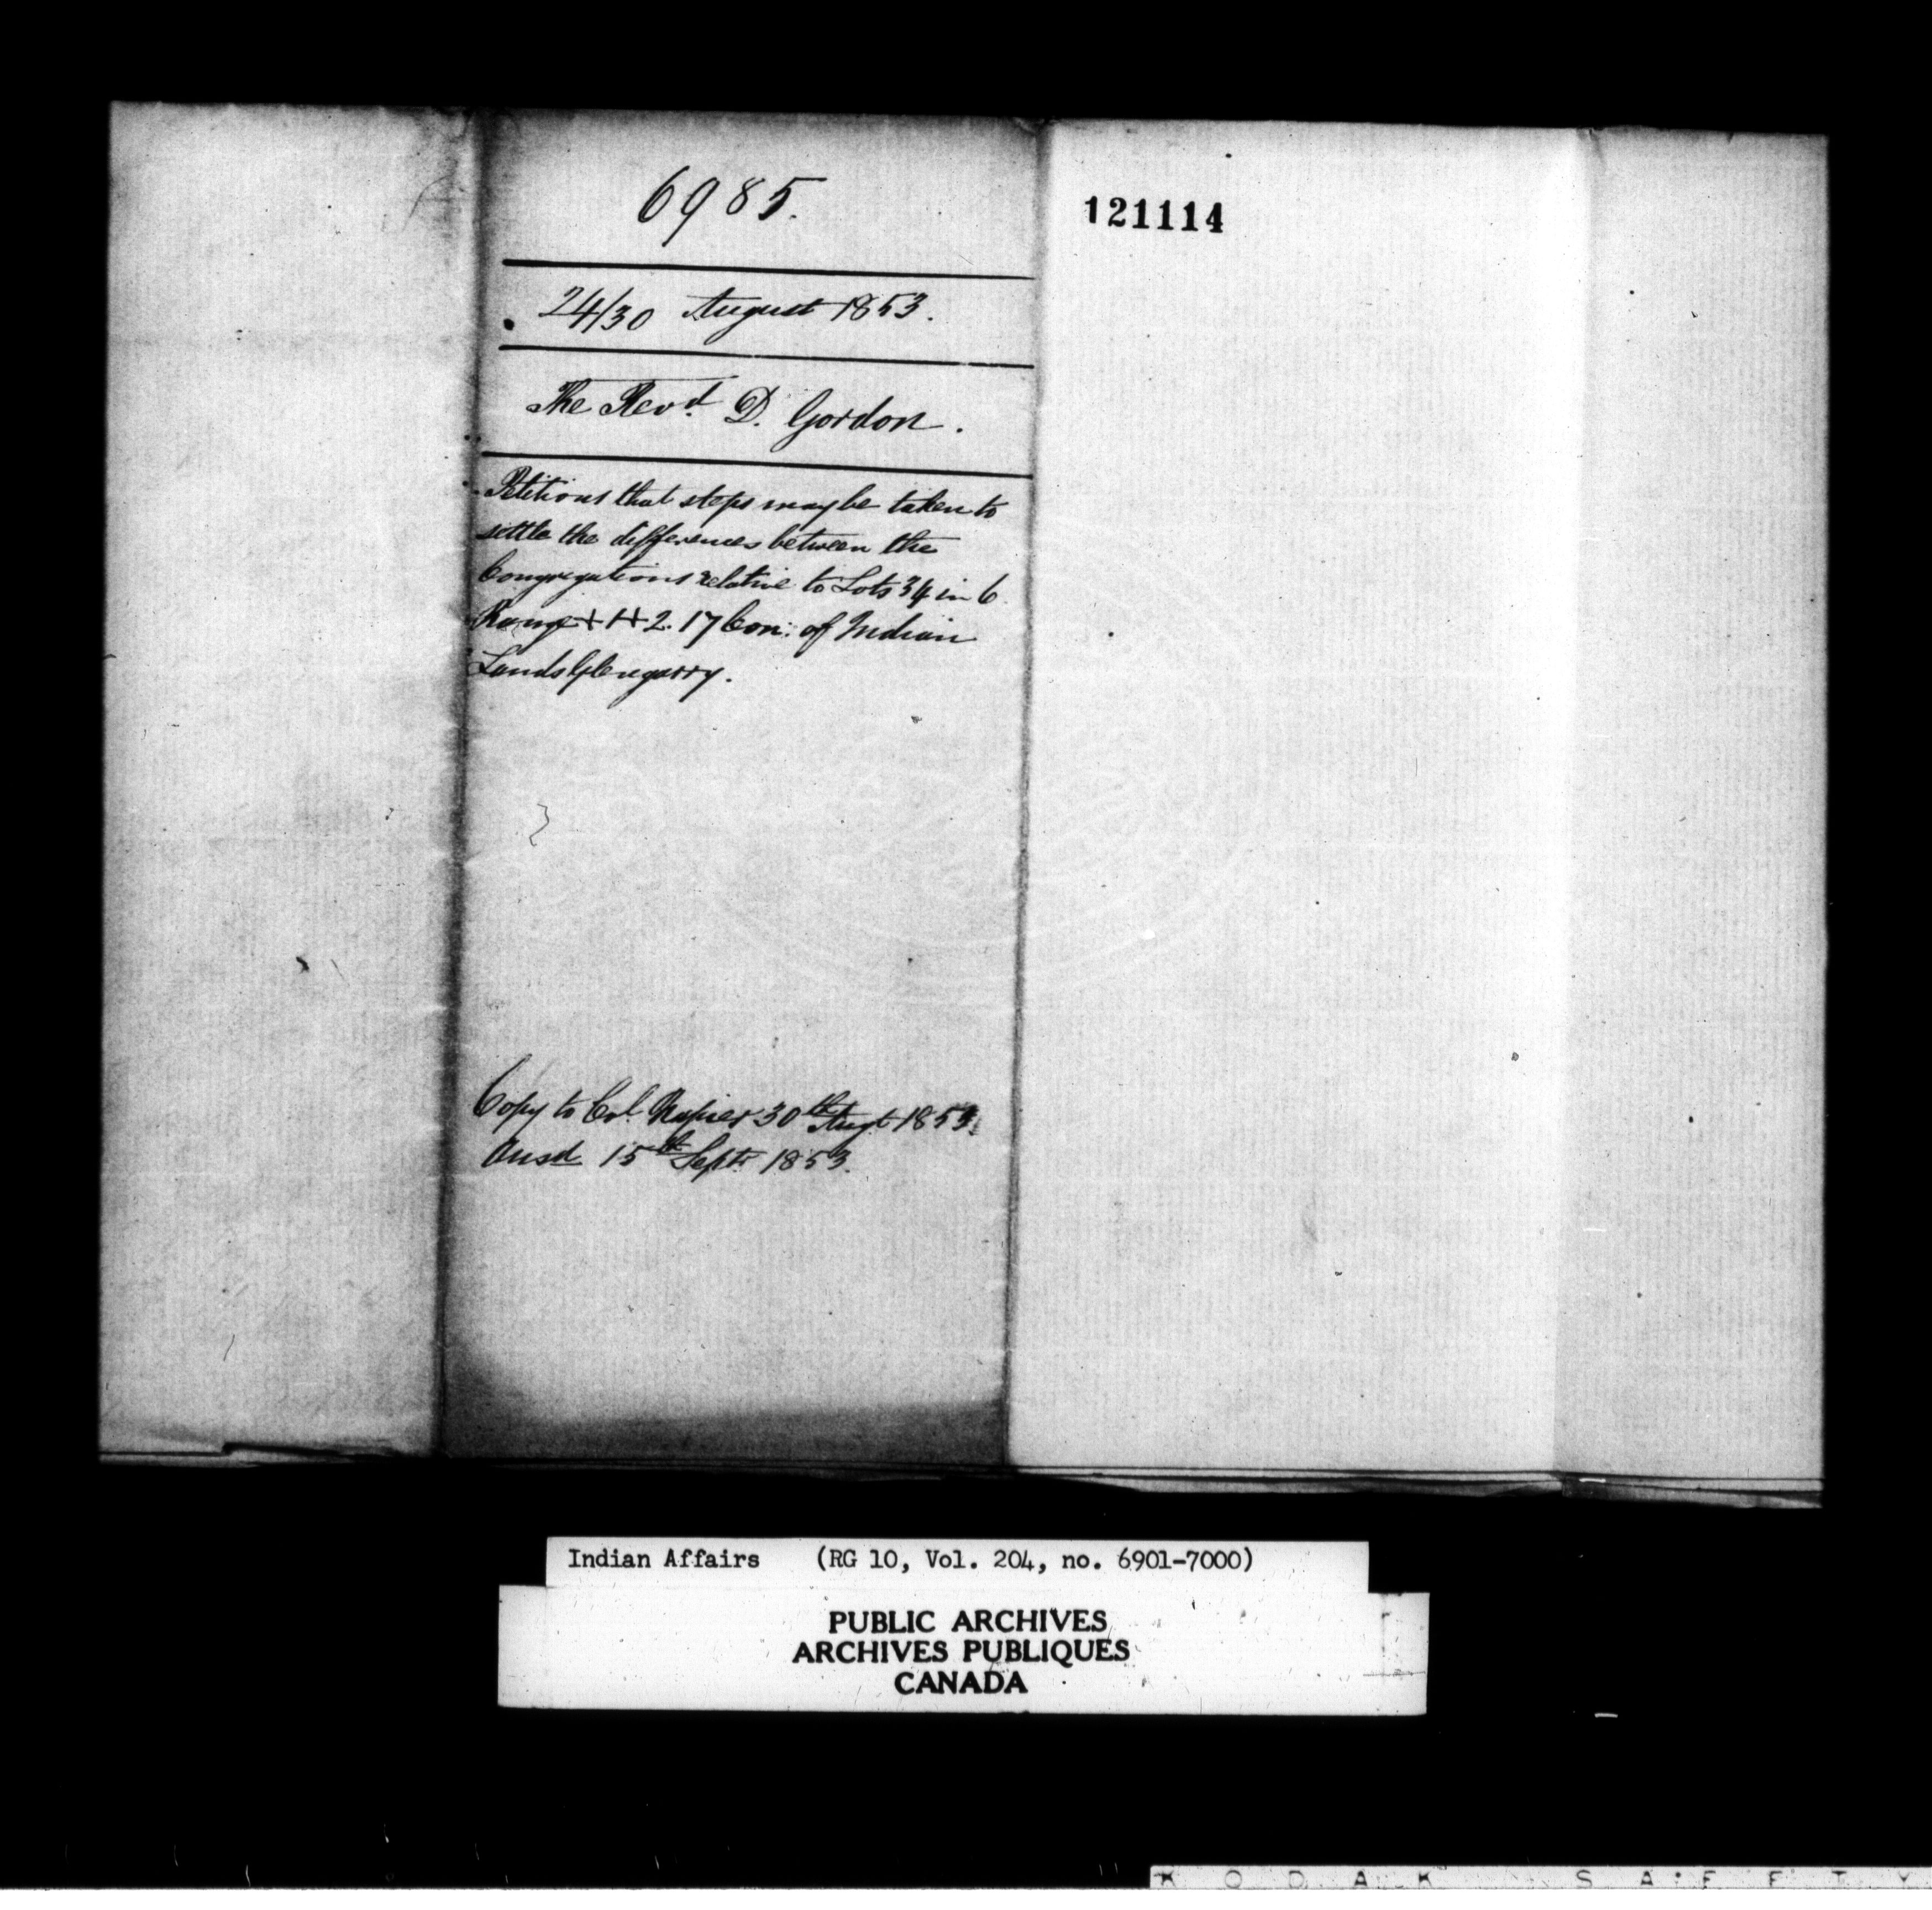 6985.
24/30 August 1853.
The Revd. D. Gordon.
Petitions that steps may be taken to
settle the differences between the
Congregations relative to Lots 34 in 6
Range + 1 + 2. 17 Con: of Indian
Lands Glengarry.
Copy to Col. Napier 30th Augt 1853.
Ansd 15th Septr 1853.
121114
Indian Affairs (RG 10, Vol. 204, no. 6901-7000)
PUBLIC ARCHIVES
ARCHIVES PUBLIQUES
CANADA
KODAK SAFETY